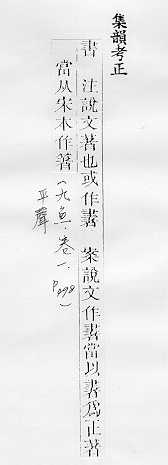 集韻考正
書　注說文著也或作𦘠　案說文作𦘠當以𦘠為正著
當从宋本作箸
(九魚.卷一.
平聲